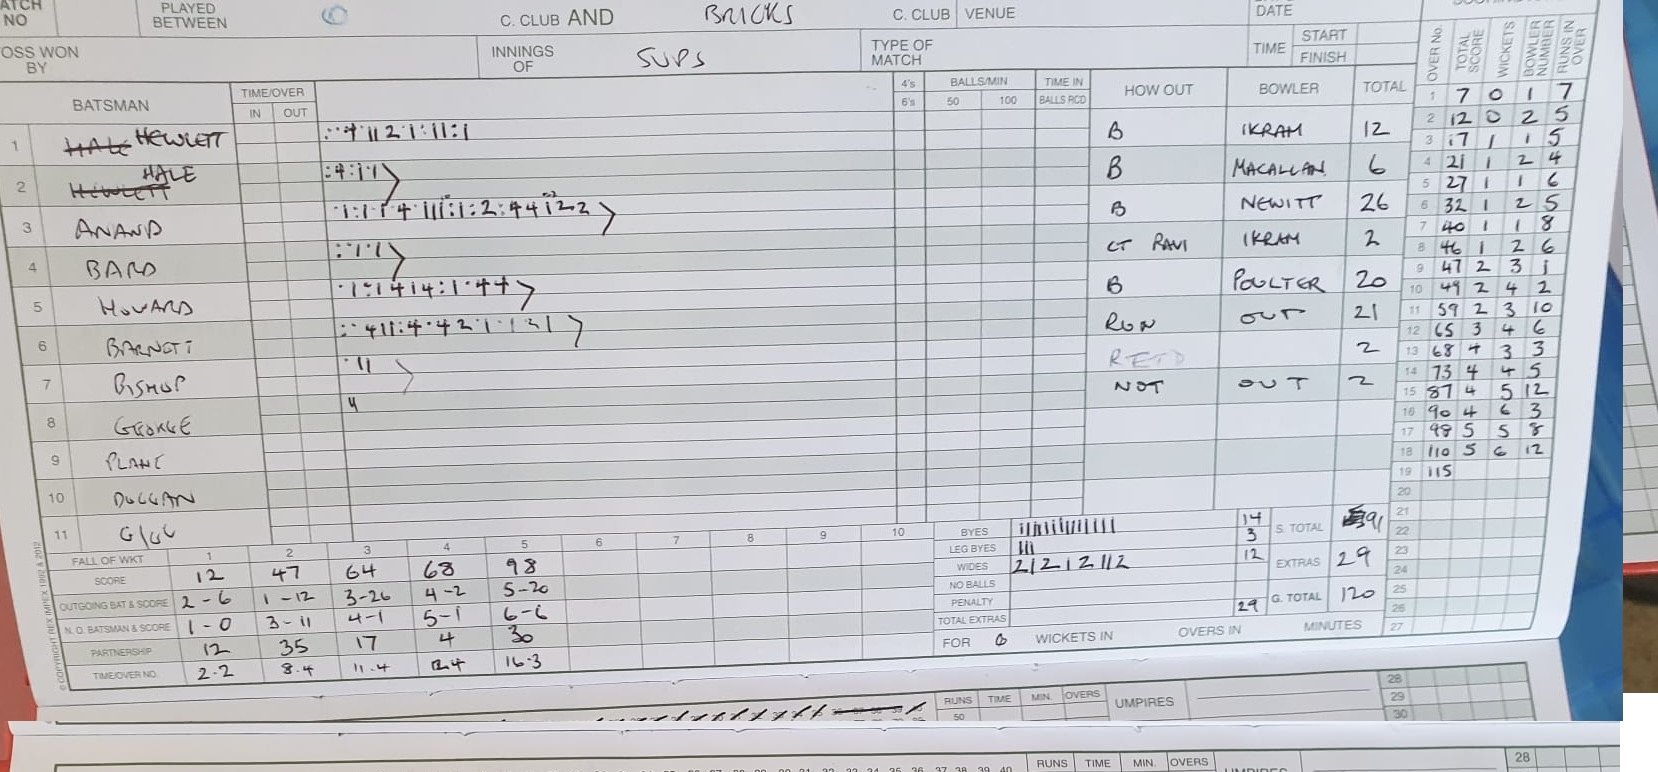 ATCH NO PLAYED BETWEEN C. CLUB AND BRICKS C. CLUB VENUE DATE
OSS WON BY INNINGS OF SUPS TYPE OF MATCH TIME START FINISH
BATSMAN TIME/OVER IN OUT 4's 6's BALLS/MIN 50 100 TIME IN BALLS RCD HOW OUT BOWLER TOTAL
1 HALE HEWLETT B IKRAM 12
2 HEWLETT HALE B MACALLAN 6
3 ANAND B NEWITT 26
4 BARD CT RAVI IKRAM 2
5 HOWARD B POULTER 20
6 BARNETT RUN OUT 21
7 BISHOP RETD 2
8 GEORGE NOT OUT 2
9 PLANT
10 DUGGAN
11
FALL OF WKT 1 2 3 4 5 6 7 8 9 10
SCORE 12 47 64 68 98
OUTGOING BAT & SCORE 2-6 1-12 3-26 4-2 5-20
N. O. BATSMAN & SCORE 1-0 3-11 4-1 5-1 6-6
PARTNERSHIP 12 35 17 4 30
TIME/OVER NO. 2.2 8.4 11.4 12.4 16.3
© COPYRIGHT REX IMPEX 1992 & 2012
BYES 14 S. TOTAL 91
LEG BYES 3
WIDES 2 1 2 1 2 1 1 2 12 EXTRAS 29
NO BALLS
PENALTY G. TOTAL 120
TOTAL EXTRAS 29
FOR 6 WICKETS IN OVERS IN MINUTES
OVER No. TOTAL SCORE WICKETS BOWLER NUMBER RUNS IN OVER
1 7 0 1 7
2 12 0 2 5
3 17 1 1 5
4 21 1 2 4
5 27 1 1 6
6 32 1 2 5
7 40 1 1 8
8 46 1 2 6
9 47 2 3 1
10 49 2 4 2
11 59 2 3 10
12 65 3 4 6
13 68 4 3 3
14 73 4 4 5
15 87 4 5 12
16 90 4 6 3
17 98 5 5 8
18 110 5 6 12
19 115
20
21
22
23
24
25
26
27
28
29
30
RUNS TIME MIN. OVERS UMPIRES
50
37 38 39 40 RUNS TIME MIN. OVERS 28